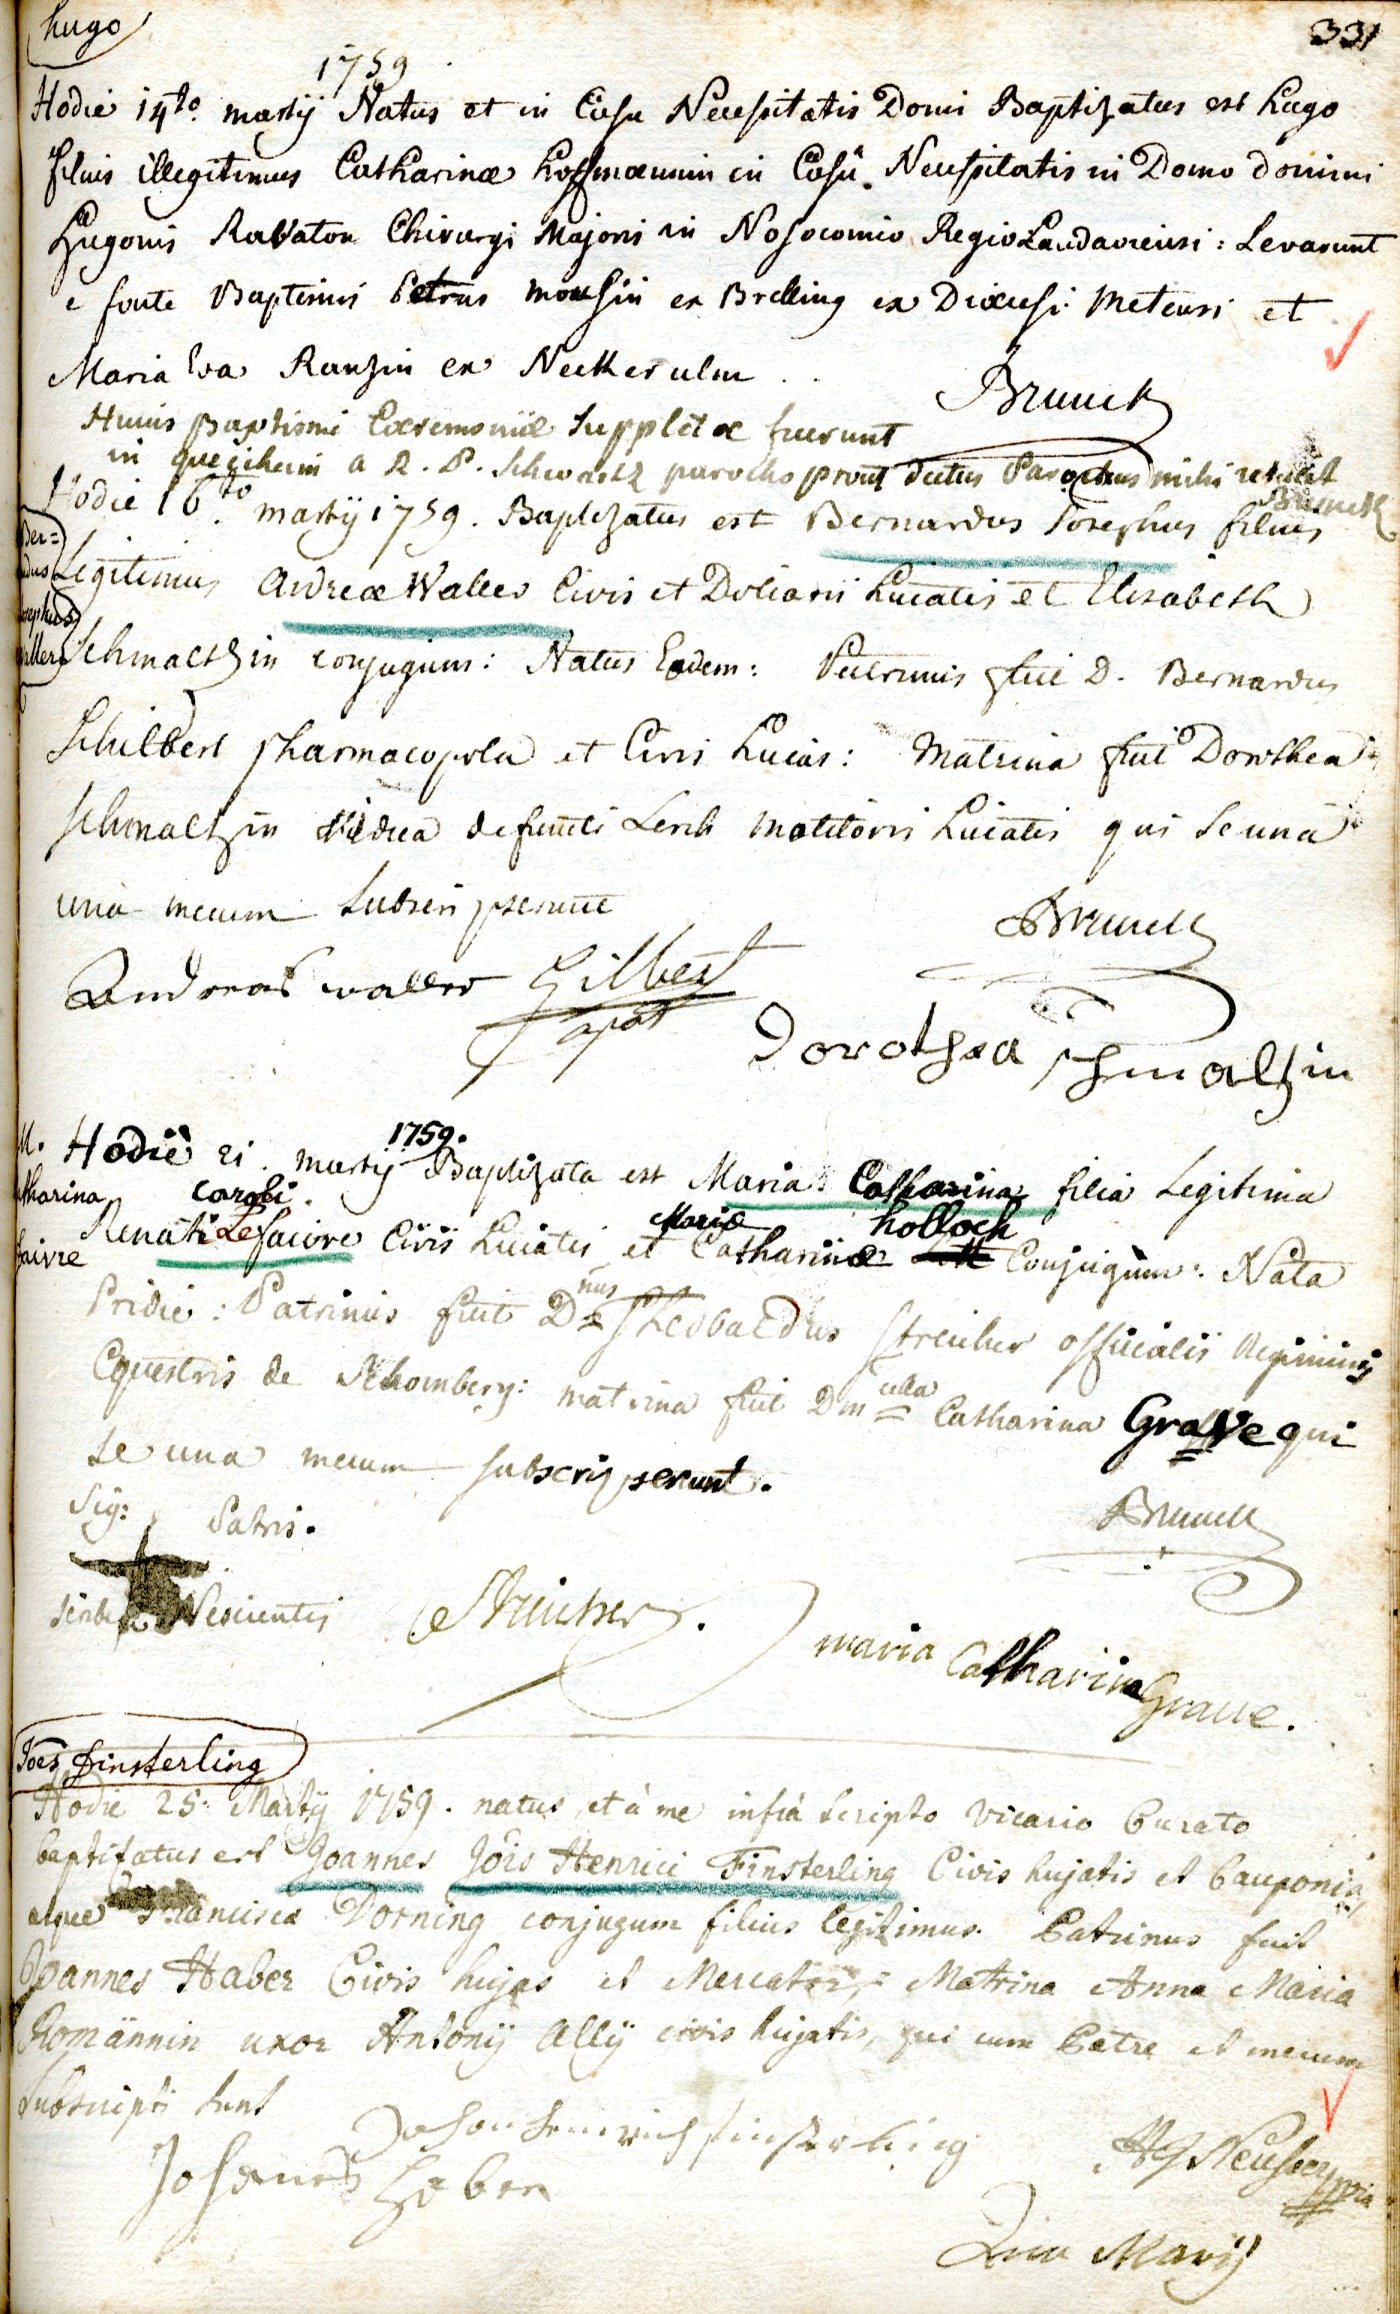 hugo
331
1759
Hodie 14to martij Natus et in Casu Necessitatis Domi Baptizatus est hugo
filius illegitimus Catharinæ hoffmannin in Casu Necessitatis in Domo domini
Hugonis Ravaton Chirurgi Majoris in Nosocomio Regio Landaviensi: Levarunt
e fonte Baptismi Petrus ex Brelling ex Diœcesi Metensi et
Maria Eva Ranzin ex Neckerulm
Brunck
Huius Baptismi Cæremoniæ Suppletæ fuerunt
in queicheim a R. P. Schwartz parocho prout dictus Parochus mihi retulit
Brunck
Hodie 16to martij 1759. Baptizatus est Bernardus Josephus filius
Legitimus Andreæ Waller Civis et Doliarii huiatis et Elisabeth
Schmaltzin conjugum: Natus Eodem: Patrinus fuit D. Bernardus
Schilbert Pharmacopola et Civis huias: Matrina fuit Dorothea
Schmaltzin vidua defuncti Lerch molitoris huiatis qui se una
una mecum Subscripserunt
Brunck
Andreas waller Gilbert
apot
Dorothea schmaltzin
M.
tharina
faivre
1759.
Hodie 21. martij Baptizata est Maria Catharina filia Legitima
Caroli
Mariæ holloch
Renati Lefaivre Civis huiatis et Catharinæ Conjugum: Nata
Pridie: Patrinus fuit Dnus Theobaldus Streicher officialis Regiminis
Equestris de Schomberg: matrina fuit Dmcella Catharina Grave qui
se una mecum subscripserunt.
Sig: Patris.
Brunck
scribere Nescientis Streicher.
maria Catharina Graue.
Joes finsterling
Hodie 25. Martij 1759. natus, et à me infrà scripto vicario Curato
baptisatus est Joannes Jois Henrici Finsterling Civis hujatis et Cauponis,
atque Francisca Dorning conjugum filius legitimus. Patrinus fuit
Joannes Haber Civis hujas et Mercator; Matrina Anna Maria
Romännin uxor Antonij Ally civis hujatis, qui cum Patre et mecum
Subscripti sunt
Johan henrich finsterling
Johannes Haber